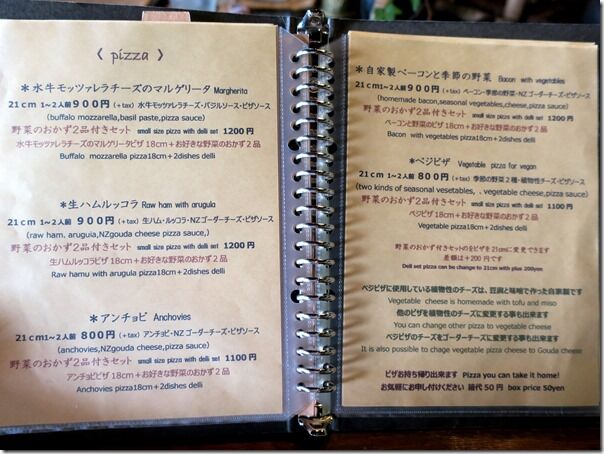 〈 pizza 〉
＊水牛モッツァレラチーズのマルゲリータ Margherita
21cm 1〜2人前 900円 (+tax) 水牛モッツァレラチーズ・バジルソース・ピザソース
(buffalo mozzarella,basil paste,pizza sauce)
野菜のおかず2品付きセット small size pizza with deli set 1200円
水牛モッツァレラチーズのマルゲリータピザ 18cm+お好きな野菜のおかず2品
Buffalo mozzarella pizza18cm+2dishes delli
＊生ハムルッコラ Raw ham with arugula
21cm 1〜2人前 900円 (+tax) 生ハム・ルッコラ・NZゴーダーチーズ・ピザソース
(raw ham, aruguia,NZgouda cheese,pizza sauce,)
野菜のおかず2品付きセット small size pizza with deli set 1200円
生ハムルッコラピザ 18cm+お好きな野菜のおかず2品
Raw hamu with arugula pizza18cm+2dishes delli
＊アンチョビ Anchovies
21cm1〜2人前 800円 (+tax) アンチョビ・NZ ゴーダーチーズ・ピザソース
(anchovies,NZgouda cheese,pizza sauce)
野菜のおかず2品付きセット small size pizza with deli set 1100円
アンチョビピザ 18cm+お好きな野菜のおかず2品
Anchovies pizza18cm+2dishes delli
＊自家製ベーコンと季節の野菜 Bacon with vegetables
21cm 1〜2人前 900円 (+tax) ベーコン・季節の野菜・NZゴーダーチーズ・ピザソース
(homemade bacon,seasonal vegetables,cheese,pizza sauce)
野菜のおかず2品付きセット small size pizza with deli set 1200円
ベーコンと野菜のピザ 18cm+お好きな野菜のおかず2品
Bacon with vegetables pizza18cm+2dishes delli
＊ベジピザ Vegetable pizza for vegan
21cm 1〜2人前 800円 (+tax) 季節の野菜2種・植物性チーズ・ピザソース
(two kinds of seasonal vesetables, . vegetable cheese,pizza sauce)
野菜のおかず2品付きセット small size pizza with deli set 1100円
ベジピザ 18cm+お好きな野菜のおかず2品
Vegetable pizza18cm+2dishes delli
野菜のおかず付きセットの全ピザを 21cmに変更できます
差額は+200円です
Deli set pizza can be change to 21cm with plus 200yen
ベジピザに使用している植物性のチーズは、豆腐と味噌で作った自家製です
Vegetable cheese is homemade with tofu and miso
他のピザを植物性のチーズに変更する事も出来ます
You can change other pizza to vegetable cheese
ベジピザのチーズをゴーダーチーズに変更する事も出来ます
It is also possible to chage vegetable pizza cheese to Gouda cheese
ピザお持ち帰り出来ます Pizza you can take it home!
お気軽にお申し付けください 箱代50円 box price 50yen